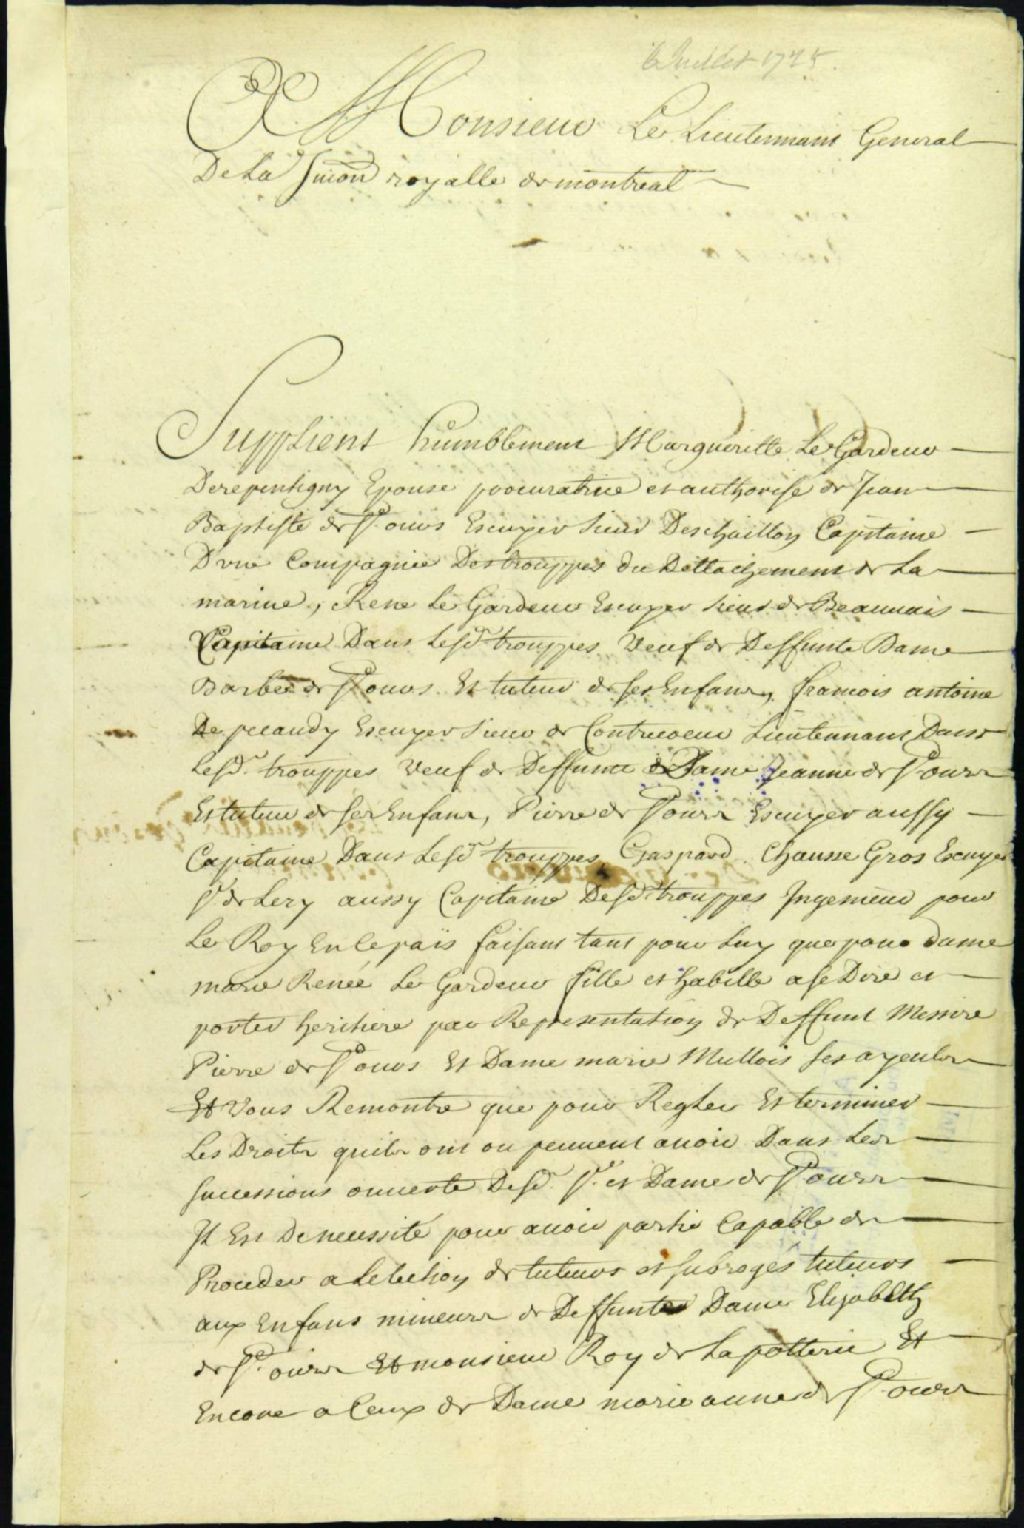 6 Juillet 1725.
A Monsieur Le Lieutennant General
De La Jurion royalle de montreal
Supplient humblement Margueritte Le Gardeur
Derepentigny Epouse procuratrice et authorisé de Jean
Baptiste de St. ours Escuyer Sieur Deschaillon Capitaine
D'vne Compagnie Des trouppes du Dettachement de La
marine, Rene Le Gardeur Escuyer Sieur de Beauuais
Capitaine Dans Lesd. trouppes Veuf de Deffunte Dame
Barbe de St ours Et tuteur de ses Enfans, francois antoine
De pecaudy Escuyer Sieur de Contrecoeur Lieutennant Dans
Lesd. trouppes Veuf de Deffunte Dame Jeanne de St ours
Et tuteur de ses Enfans, Pierre de St ours Escuyer aussy
Capitaine Dans Lesd. trouppes, Gaspard Chausse Gros Escuyer
Sr. de Lery aussy Capitaine Desd. trouppes Ingenieur pour
Le Roy En le païs faisant tant pour Luy que pour dame
marie Renée Le Gardeur fille et habille a se Dire et
porter heritiere par Representation de Deffunt Messire
Pierre de St ours Et Dame marie Mullois ses ayeulx
Et Vous Remontre que pour Regler Et terminer
Les Droits quils ont ou peuuent auoir Dans Les
successions ouuerte Desd. Sr. et Dame de St ours
Il Est De necessité pour auoir partie Capable de
Proceder a Letection de tuteurs et subrogés tuteurs
aux Enfans mineurs de Deffunte Dame Elizabeth
de St. ours Et monsieur Roy de La potterie Et
Encore a Ceux de Dame marie anne de St ours